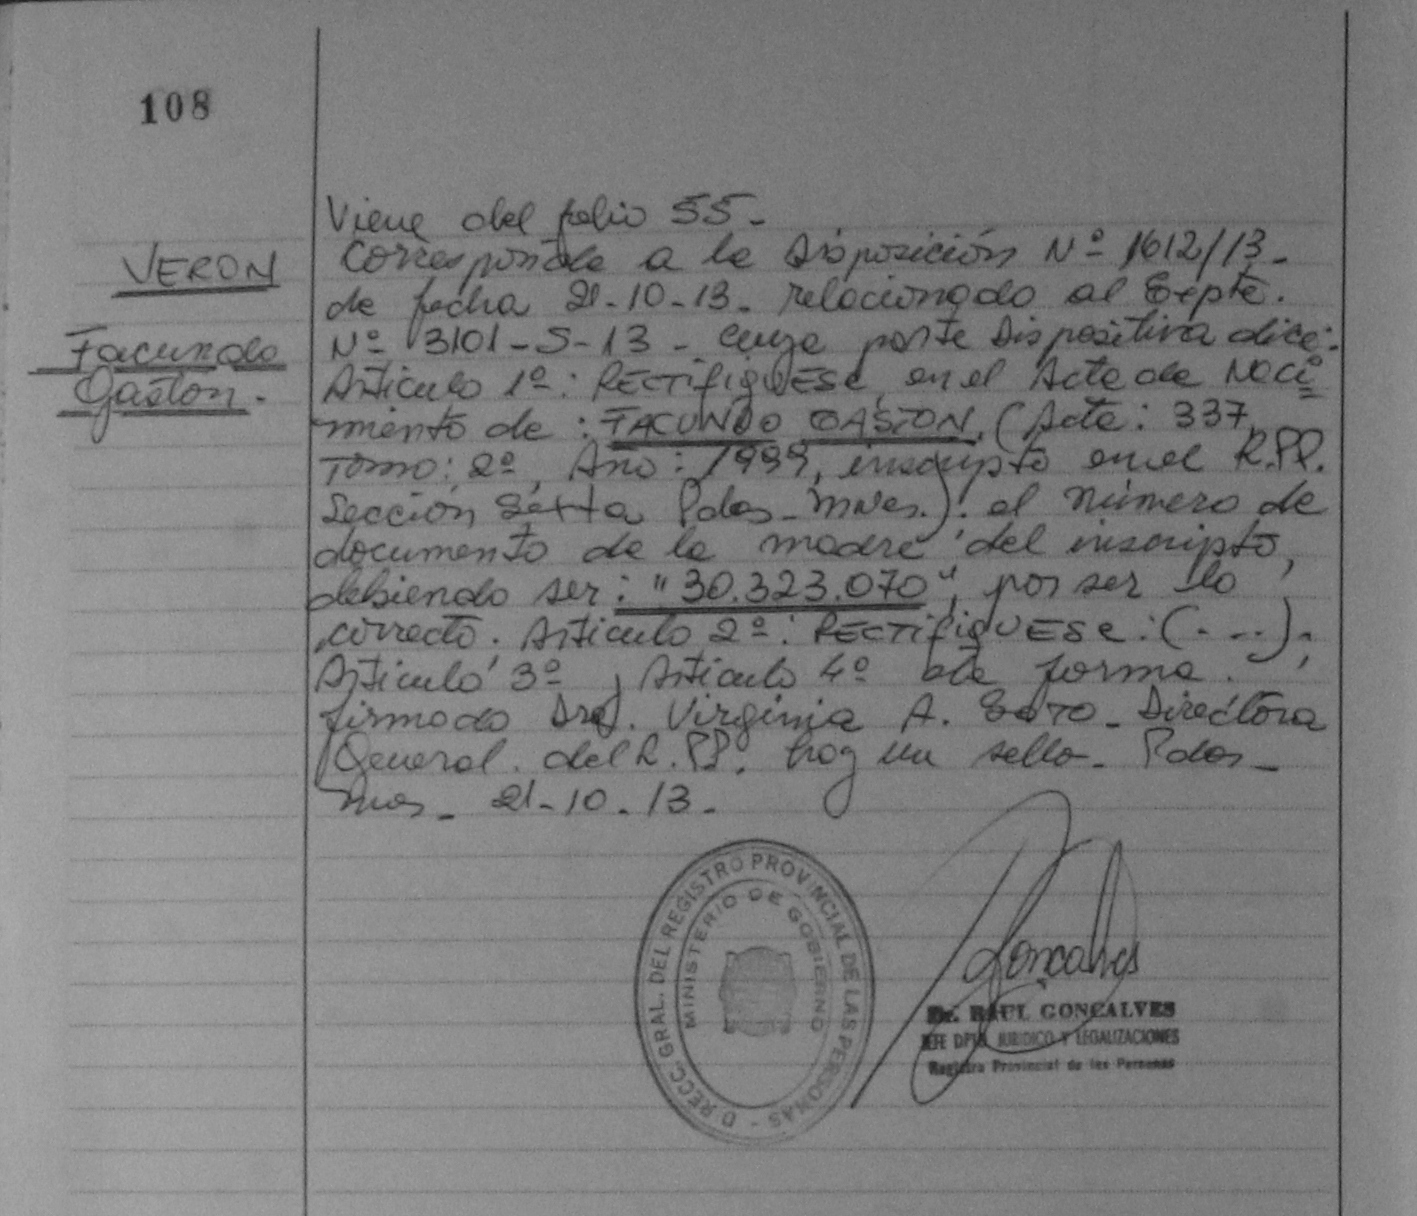 108
VERON
Facundo
Gastón.
Viene del folio 55-
Corresponde a la Disposición Nº 1612/13-
de fecha 21-10-13- relacionado al Expte.
Nº 3101-S-13- cuya parte Dispositiva dice:
Artículo 1º: RECTIFIQUESE, en el Acta de Naci=
miento de: FACUNDO GASTON, (Acta: 337,
Tomo: 2º, Año: 1999, inscripto en el R.PP.
Sección Sexta Pdas- Mnes.): el número de
documento de la madre del inscripto,
debiendo ser: "30.323.070", por ser lo
correcto. Artículo 2º: RECTIFIQUESE: (....).
Artículo 3º, Artículo 4º de forma.
firmado Dra. Virginia A. Directora
General. del R.PP. hay un sello- Pdas-
Mnes- 21-10-13-
DIRECC. GRAL. DEL REGISTRO PROVINCIAL DE LAS PERSONAS -
MINISTERIO DE GOBIERNO
Goncalves
Dr. RAUL GONCALVES
JEFE DPTO. JURIDICO Y LEGALIZACIONES
Registro Provincial de las Personas